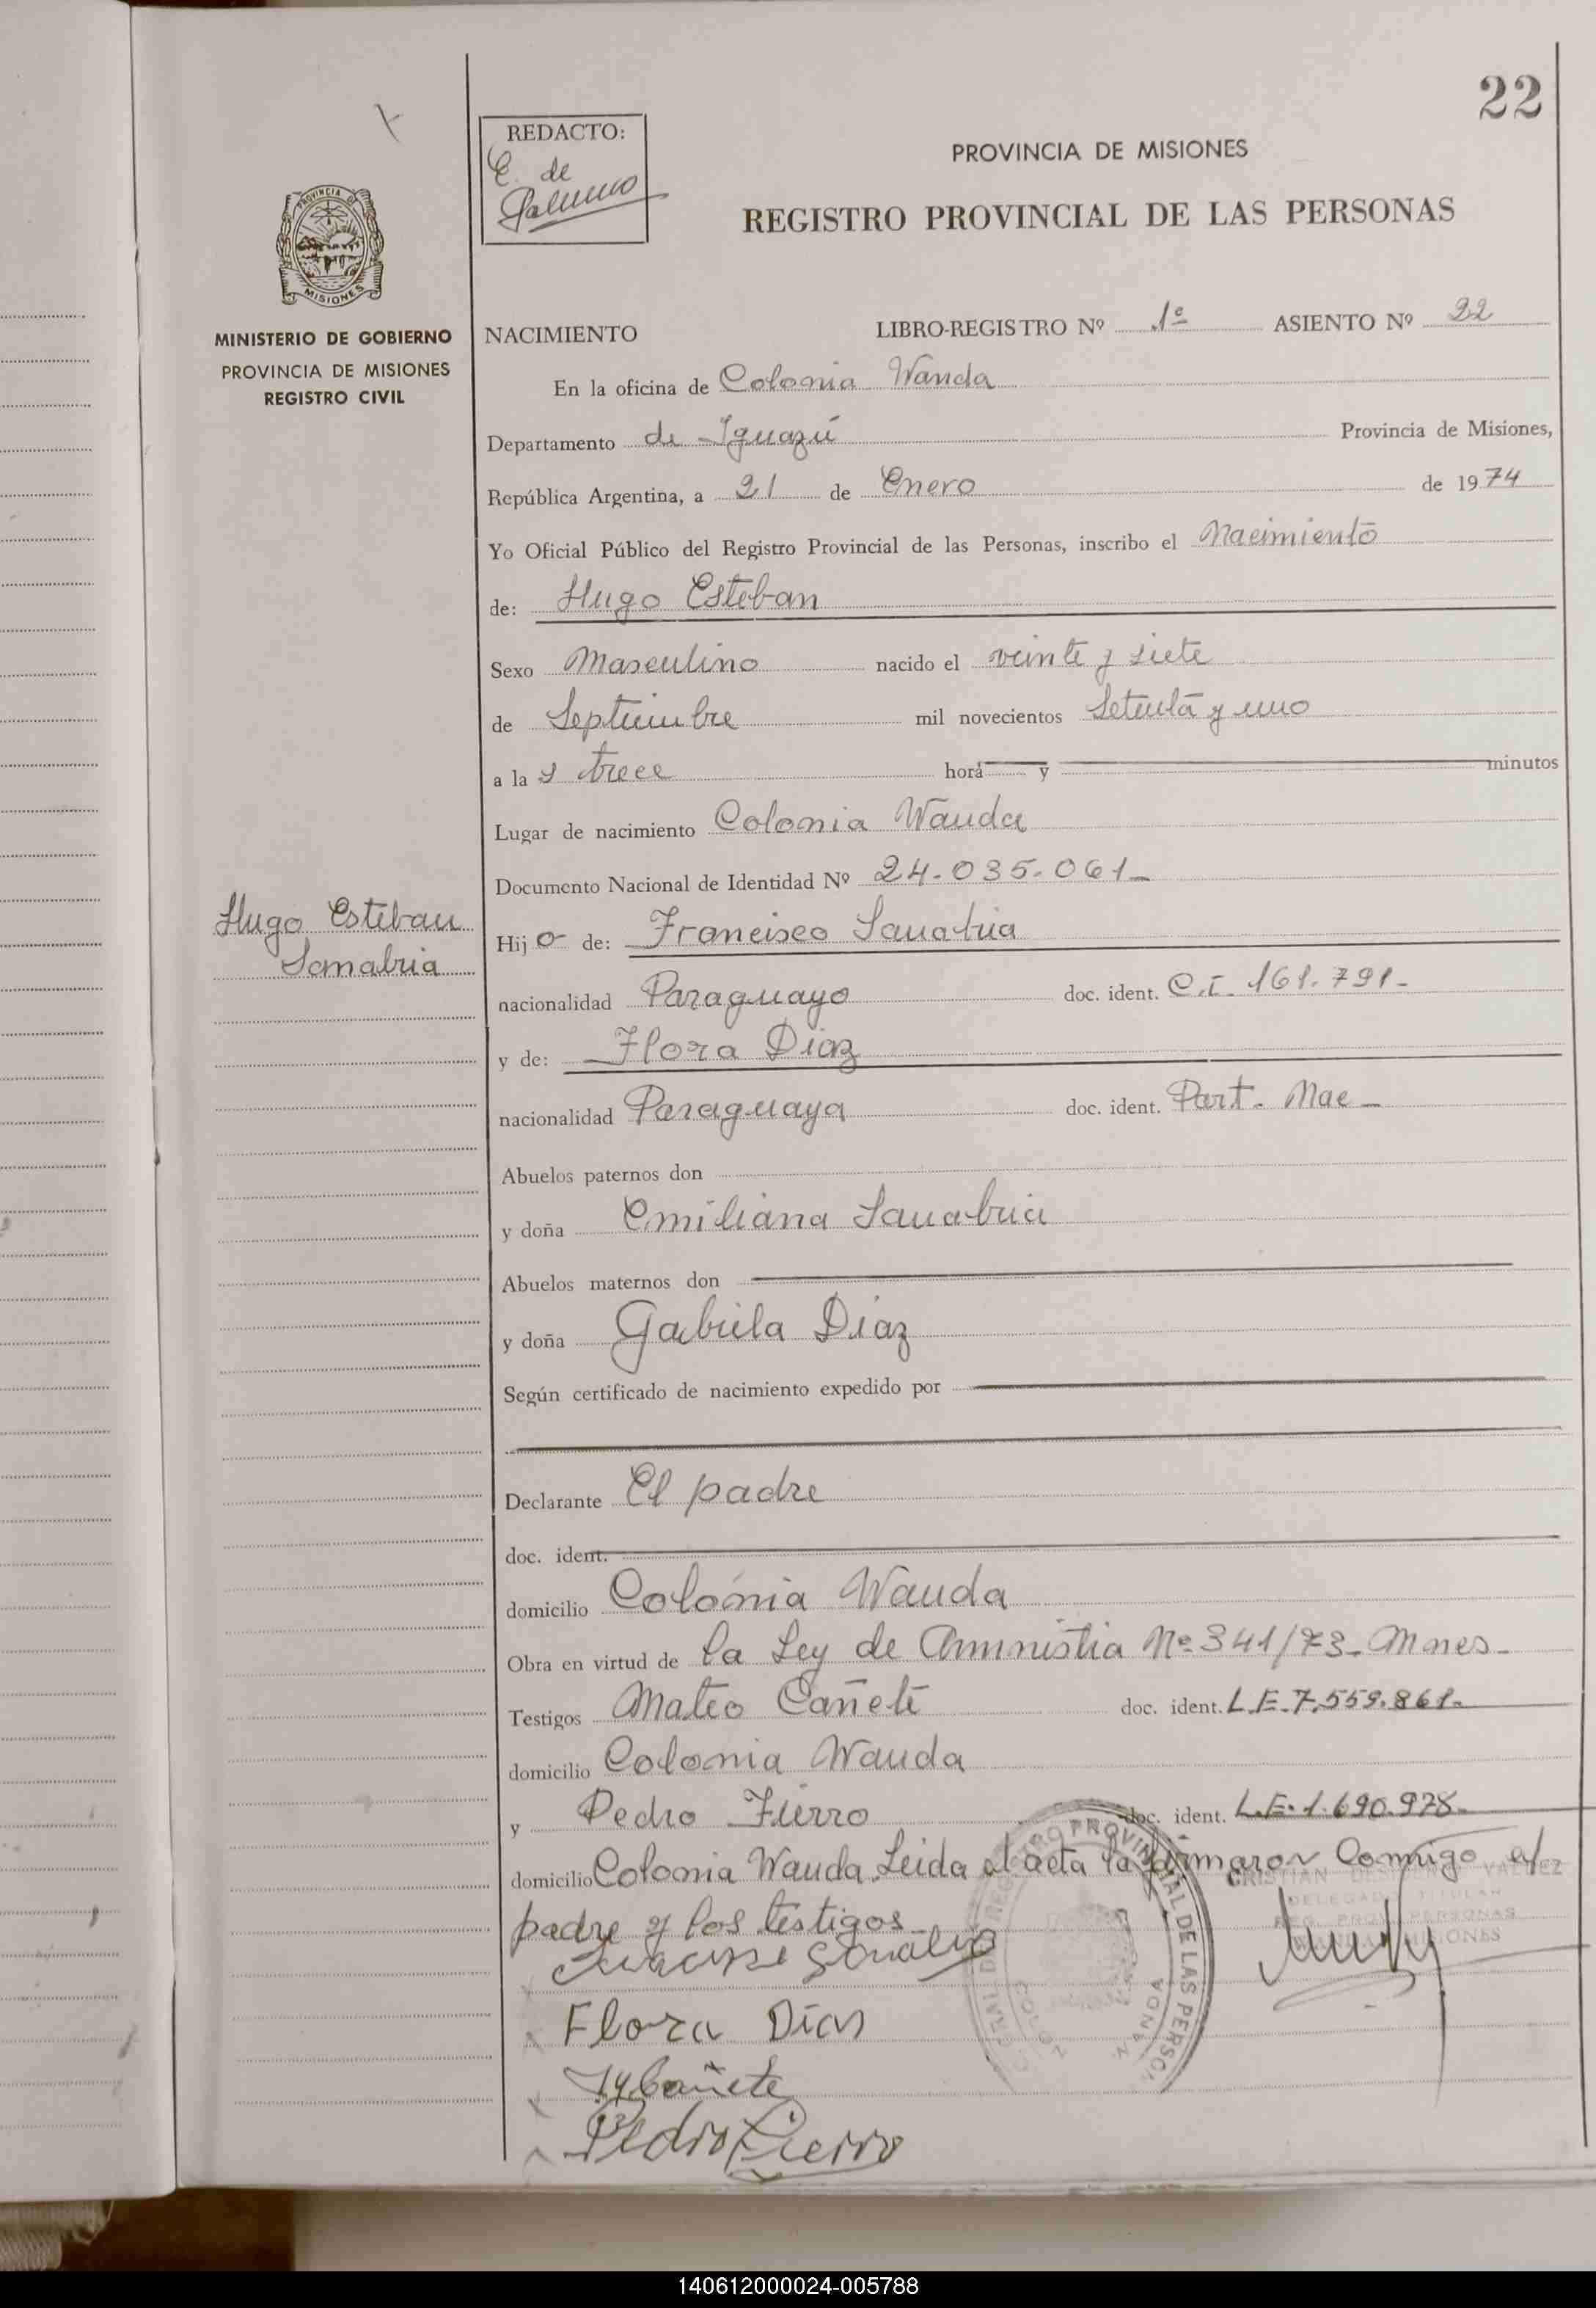 22
REDACTO:
E. de
PROVINCIA DE MISIONES
REGISTRO PROVINCIAL DE LAS PERSONAS
PROVINCIA DE
MISIONES
MINISTERIO DE GOBIERNO
PROVINCIA DE MISIONES
REGISTRO CIVIL
NACIMIENTO LIBRO-REGISTRO Nº 1º ASIENTO Nº 22
En la oficina de Colonia Wanda
Departamento de Iguazú Provincia de Misiones,
República Argentina, a 21 de Enero de 1974
Yo Oficial Público del Registro Provincial de las Personas, inscribo el Nacimiento
de: Hugo Esteban
Sexo Masculino nacido el veinte y siete
de Septiembre mil novecientos Setenta y uno
a la s trece hora y minutos
Lugar de nacimiento Colonia Wanda
Documento Nacional de Identidad Nº 24.035.061-
Hugo Esteban
Sanabria
Hij o de: Francisco Sanabria
nacionalidad Paraguayo doc. ident. C.I. 161.791-
y de: Flora Diaz
nacionalidad Paraguaya doc. ident. Part. Nac-
Abuelos paternos don
y doña Emiliana Sanabria
Abuelos maternos don
y doña Gabriela Diaz
Según certificado de nacimiento expedido por
Declarante El padre
doc. ident.
domicilio Colonia Wanda
Obra en virtud de la Ley de Amnistia Nº 341/73- Mnes-
Testigos Mateo Cañete doc. ident. L.E.7.559.861-
domicilio Colonia Wanda
y Pedro Fierro doc. ident. L.E.1.690.978-
domicilio Colonia Wanda. Leida el acta la firmaron Conmigo el
padre y los testigos
CRISTIAN
DELEGADO TITULAR
REG. PROV. PERSONAS
Flora Dias
Cañete
Pedro Fierro
140612000024-005788